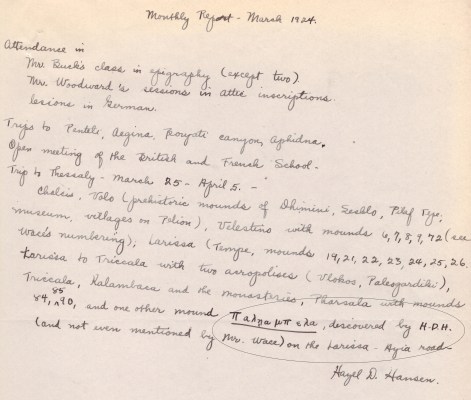 Monthly Report - March 1924.
Attendance in
Mr. Buck's class in epigraphy (except two)
Mr. Woodward's sessions in attic inscriptions.
lessons in German.
Trips to Pentele, Aegina, canyon, Aphidna.
Open meeting of the British and French School -
Trip to Thessaly - March 25 - April 5. -
Chalcis, Volo (prehistoric mounds of Dhimini, Sesklo, Pilaf Tepe,
museum, villages on Pelion), Velestino with mounds 6, 7, 8, 9, 72 (see
Wace's numbering), Larissa (Tempe, mounds 19, 21, 22, 23, 24, 25, 26.
Larissa to Triccala with two acropolises (Vlokos, Paleogardiki),
Triccala, Kalambaca and the monasteries, Pharsala with mounds
84, 85, 90, and one other mound, discovered by H.D.H.
(and not even mentioned by Mr. Wace) on the Larissa - Ayia road -
Hazel D. Hansen.